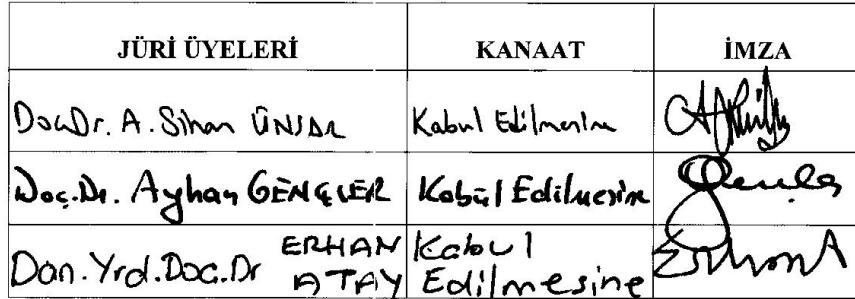 JÜRİ ÜYELERİ KANAAT İMZA
Doç.Dr. A. Sinan ÜNSAR Kabul Edilmesine
Doç.Dr. Ayhan GENÇLER Kabül Edilmesine
Dan. Yrd. Doc. Dr ERHAN ATAY Kabul Edilmesine